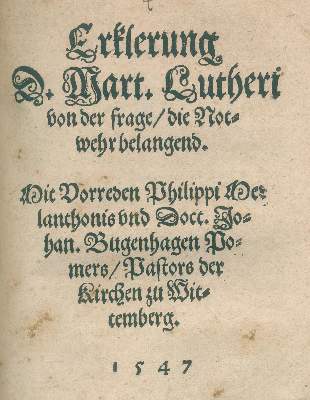 Erklerung
D. Mart. Lutheri
von der frage/ die Not-
wehr belangend.
Mit Vorreden Philippi Me-
lanchonis vnd Doct. Jo-
han. Bugenhagen Po-
mers/ Pastors der
Kirchen zu Wit-
temberg.
1547